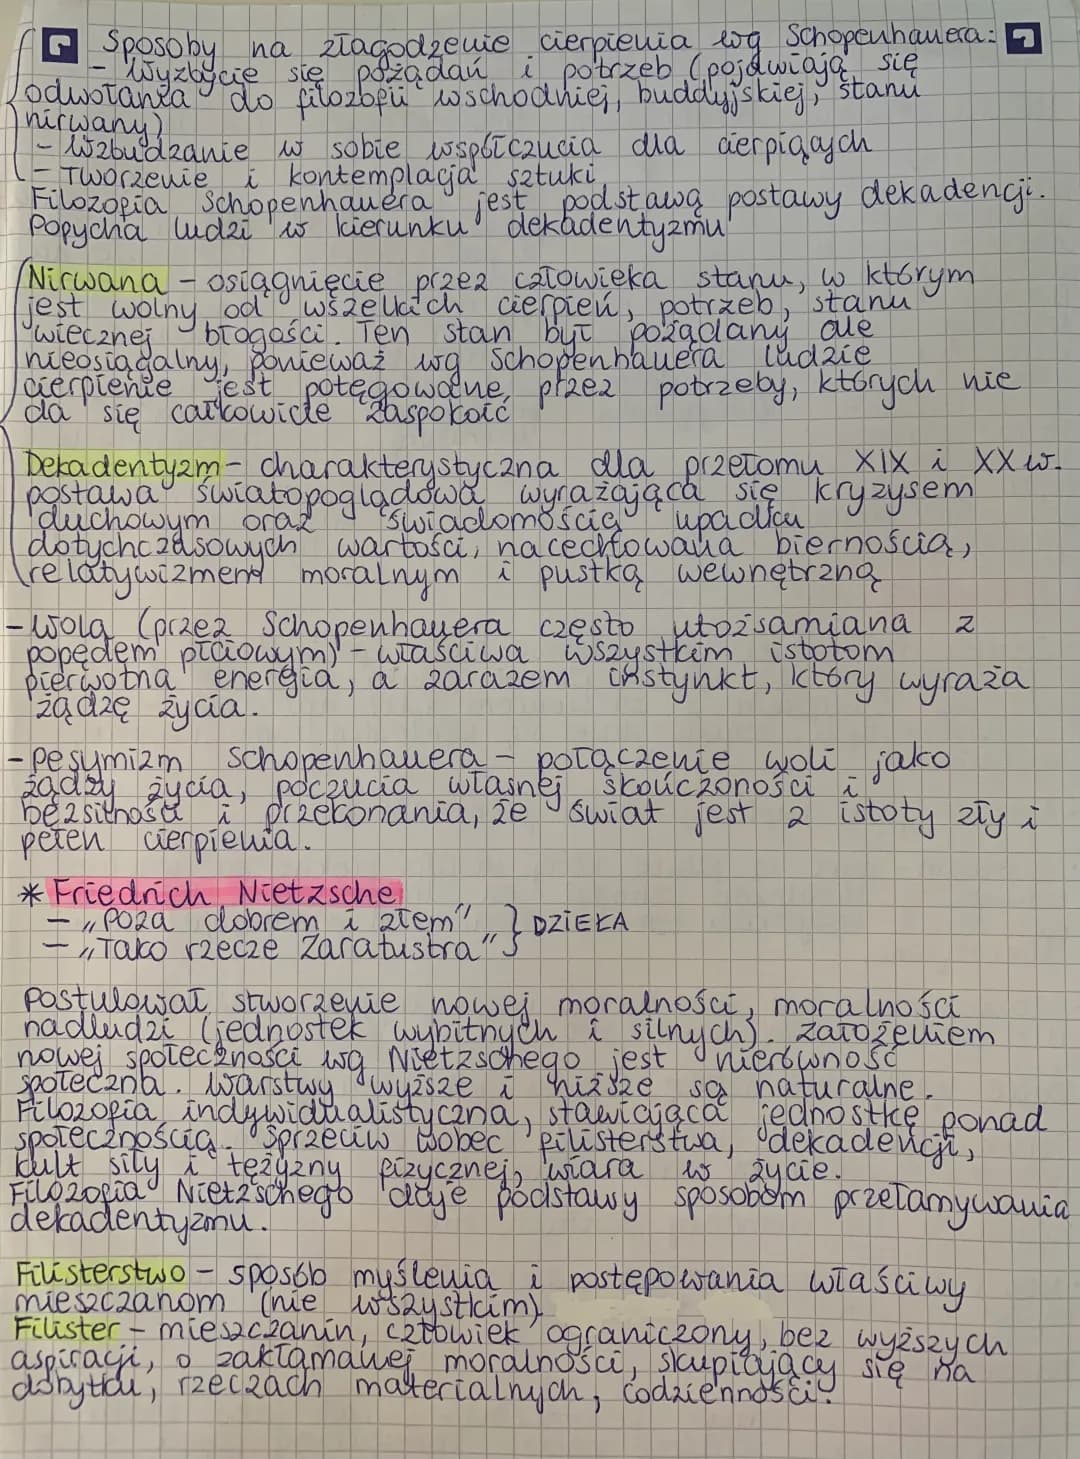 Sposoby na złagodzenie cierpienia wg Schopenhauera:
- Wyzbycie się pożądań i potrzeb (pojawiają się
odwołania do filozofii wschodniej, buddyjskiej, stanu
nirwany)
- Wzbudzanie w sobie współczucia dla cierpiących
- Tworzenie i kontemplacja sztuki
Filozofia Schopenhauera jest podstawą postawy dekadencji.
Popycha ludzi w kierunku dekadentyzmu
Nirwana - osiągnięcie przez człowieka stanu, w którym
jest wolny od wszelkich cierpień, potrzeb, stanu
wiecznej błogości. Ten stan był pożądany ale
nieosiągalny, ponieważ wg Schopenhauera ludzie
cierpienie jest potęgowane, przez potrzeby, których nie
da się całkowicie zaspokoić
Dekadentyzm - charakterystyczna dla przełomu XIX i XX w.
postawa światopoglądowa wyrażająca się kryzysem
duchowym oraz świadomością upadku
dotychczasowych wartości, nacechowana biernością,
relatywizmem moralnym i pustką wewnętrzną
- Wola (przez Schopenhauera często utożsamiana z
popędem płciowym) - właściwa wszystkim istotom
pierwotna energia, a zarazem instynkt, który wyraża
żądzę życia.
- Pesymizm Schopenhauera - połączenie woli jako
żądzy życia, poczucia własnej skończoności i
bezsilności i przekonania, że świat jest z istoty zły i
pełen cierpienia.
* Friedrich Nietzsche
- „Poza dobrem i złem" } DZIEŁA
- „Tako rzecze Zaratustra"
Postulował stworzenie nowej moralności, moralności
nadludzi (jednostek wybitnych i silnych). Założeniem
nowej społeczności wg Nietzschego jest nierówność
społeczna. Warstwy wyższe i niższe są naturalne.
Filozofia indywidualistyczna, stawiająca jednostkę ponad
społecznością. Sprzeciw wobec filisterstwa, dekadencji,
kult siły i tężyzny fizycznej, wiara w życie.
Filozofia Nietzschego daje podstawy sposobom przełamywania
dekadentyzmu.
Filisterstwo - sposób myślenia i postępowania właściwy
mieszczanom (nie wszystkim)
Filister - mieszczanin, człowiek ograniczony, bez wyższych
aspiracji, o zakłamanej moralności, skupiający się na
dobytku, rzeczach materialnych, codzienności.